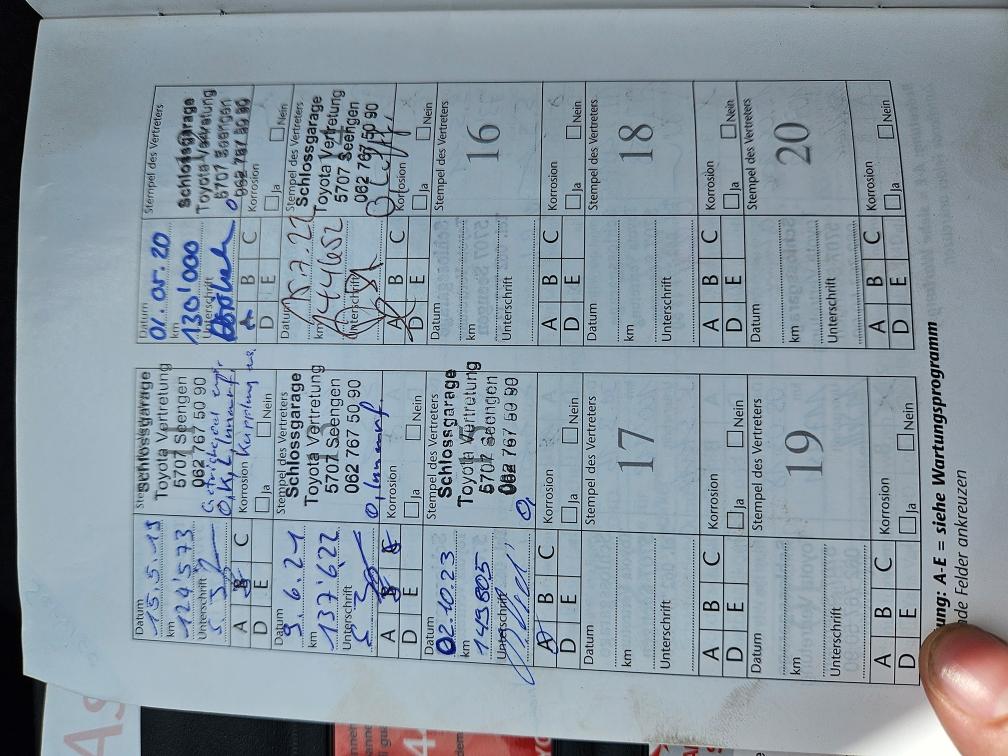 Datum
15.5.19
km
124'573
Unterschrift
A B C
D E
Schlossgarage
Toyota Vertretung
5707 Seengen
062 767 50 90
Korrosion
Ja Nein
Datum
01.05.20
km
130'000
Unterschrift
A B C
D E
Stempel des Vertreters
Schlossgarage
Toyota Vertretung
5707 Seengen
062 767 50 90
Korrosion
Ja Nein
Datum
9.6.21
km
137'622
Unterschrift
A B C
D E
Stempel des Vertreters
Schlossgarage
Toyota Vertretung
5707 Seengen
062 767 50 90
Korrosion
Ja Nein
Datum
km
144652
Unterschrift
A B C
D E
Stempel des Vertreters
Schlossgarage
Toyota Vertretung
5707 Seengen
062 767 50 90
Korrosion
Ja Nein
Datum
02.10.23
km
149805
Unterschrift
A B C
D E
Stempel des Vertreters
Schlossgarage
Toyota Vertretung
5707 Seengen
062 767 50 90
Korrosion
Ja Nein
Datum
km
Unterschrift
A B C
D E
Stempel des Vertreters
16
Korrosion
Ja Nein
Datum
km
Unterschrift
A B C
D E
Stempel des Vertreters
17
Korrosion
Ja Nein
Datum
km
Unterschrift
A B C
D E
Stempel des Vertreters
18
Korrosion
Ja Nein
Datum
km
Unterschrift
A B C
D E
Stempel des Vertreters
19
Korrosion
Ja Nein
Datum
km
Unterschrift
A B C
D E
Stempel des Vertreters
20
Korrosion
Ja Nein
ung: A-E = siehe Wartungsprogramm
nde Felder ankreuzen